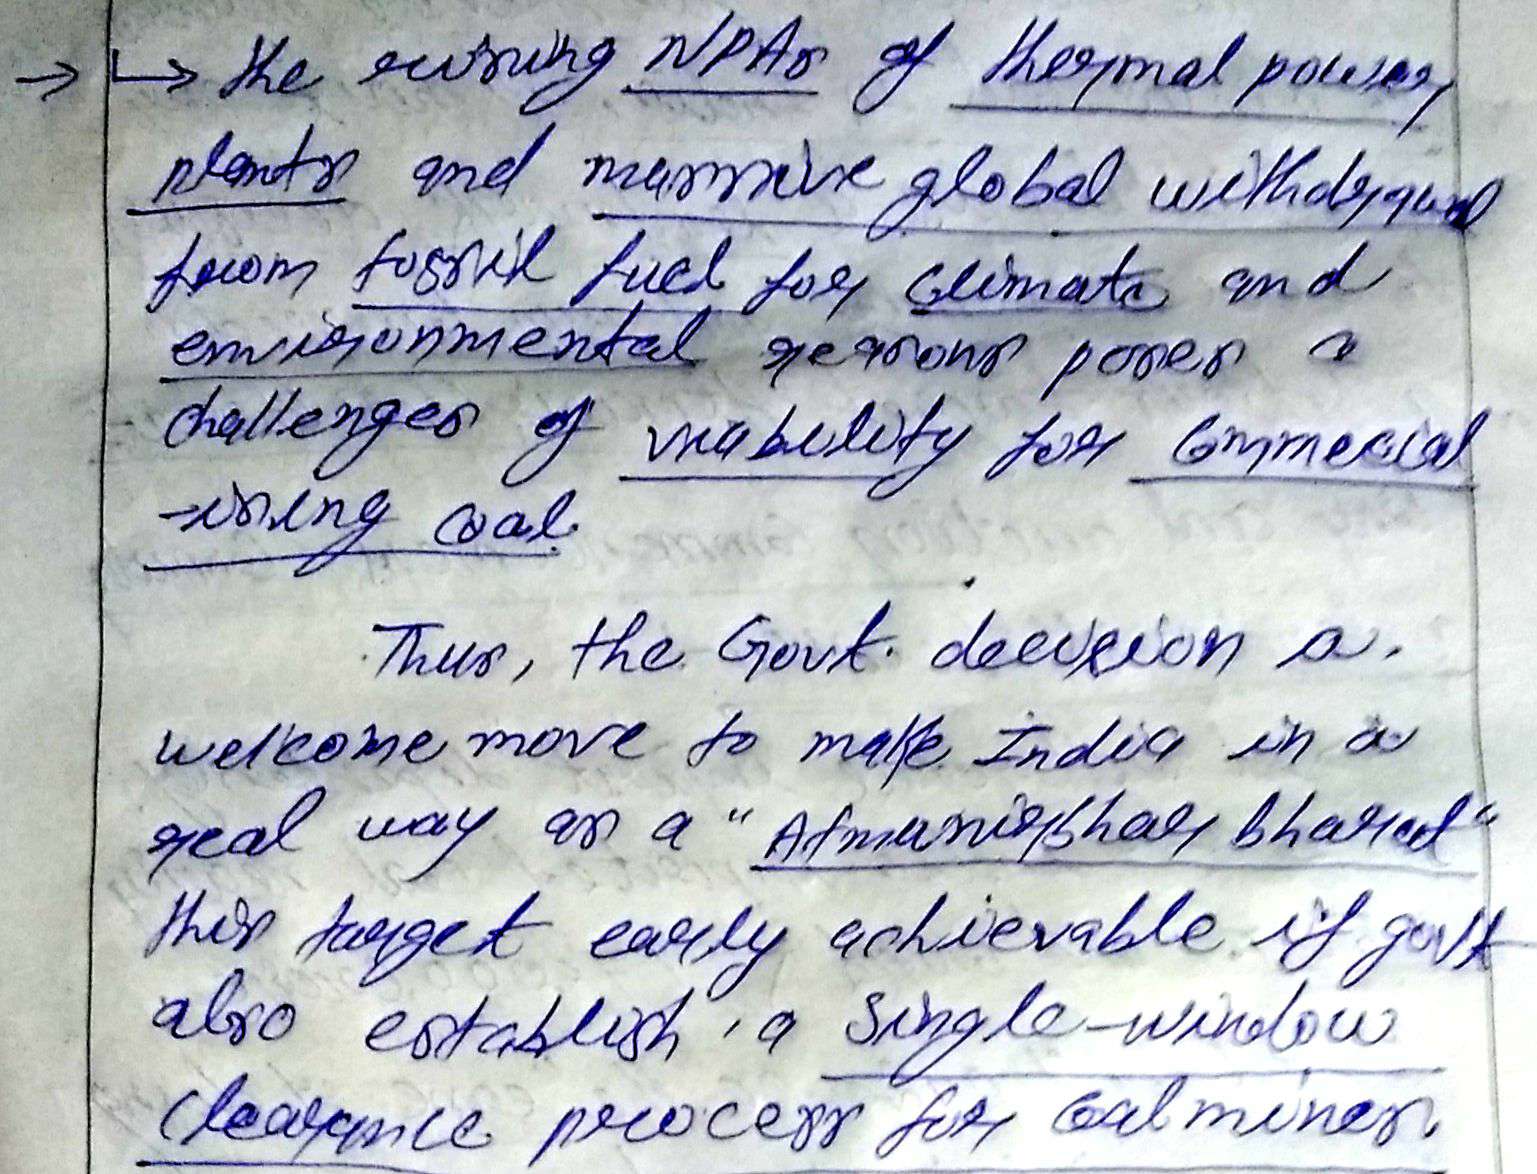 → ↳ the rising NPAs of thermal power
plants and massive global withdrawal
from fossil fuel for climate and
environmental reasons poses a
challenges of viability for Commercial
-ising coal.
Thus, the Govt. decision a
welcome move to make India in a
real way as a "Atmanirbhar Bharat"
this target early achievable if govt
also establish a single-window
clearance process for coal mines.